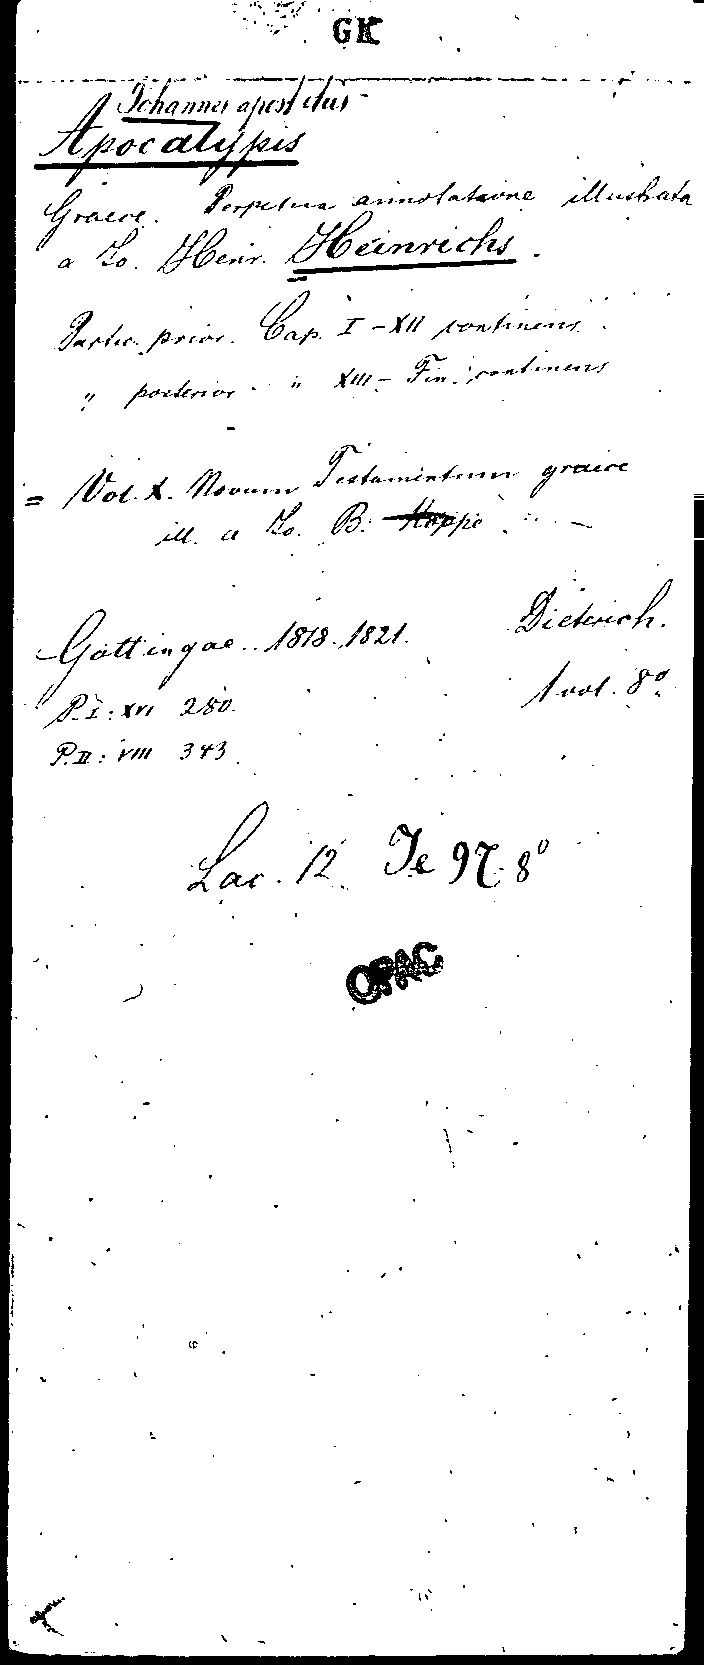 GK
Johannes apostolus
Apocalypsis
Graece. Perpetua annotatione illustrata
a Jo. Henr. Heinrichs.
Partic. prior. Cap. I - XII continens.
" posterior. " XIII - Fin. continens
= Vol. X. Novum Testamentum graece
ill. a Jo. B. Koppe
Göttingae. 1818-1821. Dieterich.
P. I: XVI 280. 1 vol. 8°.
P. II: VIII 343
Lac. 12 Te 97. 8°
OPAC